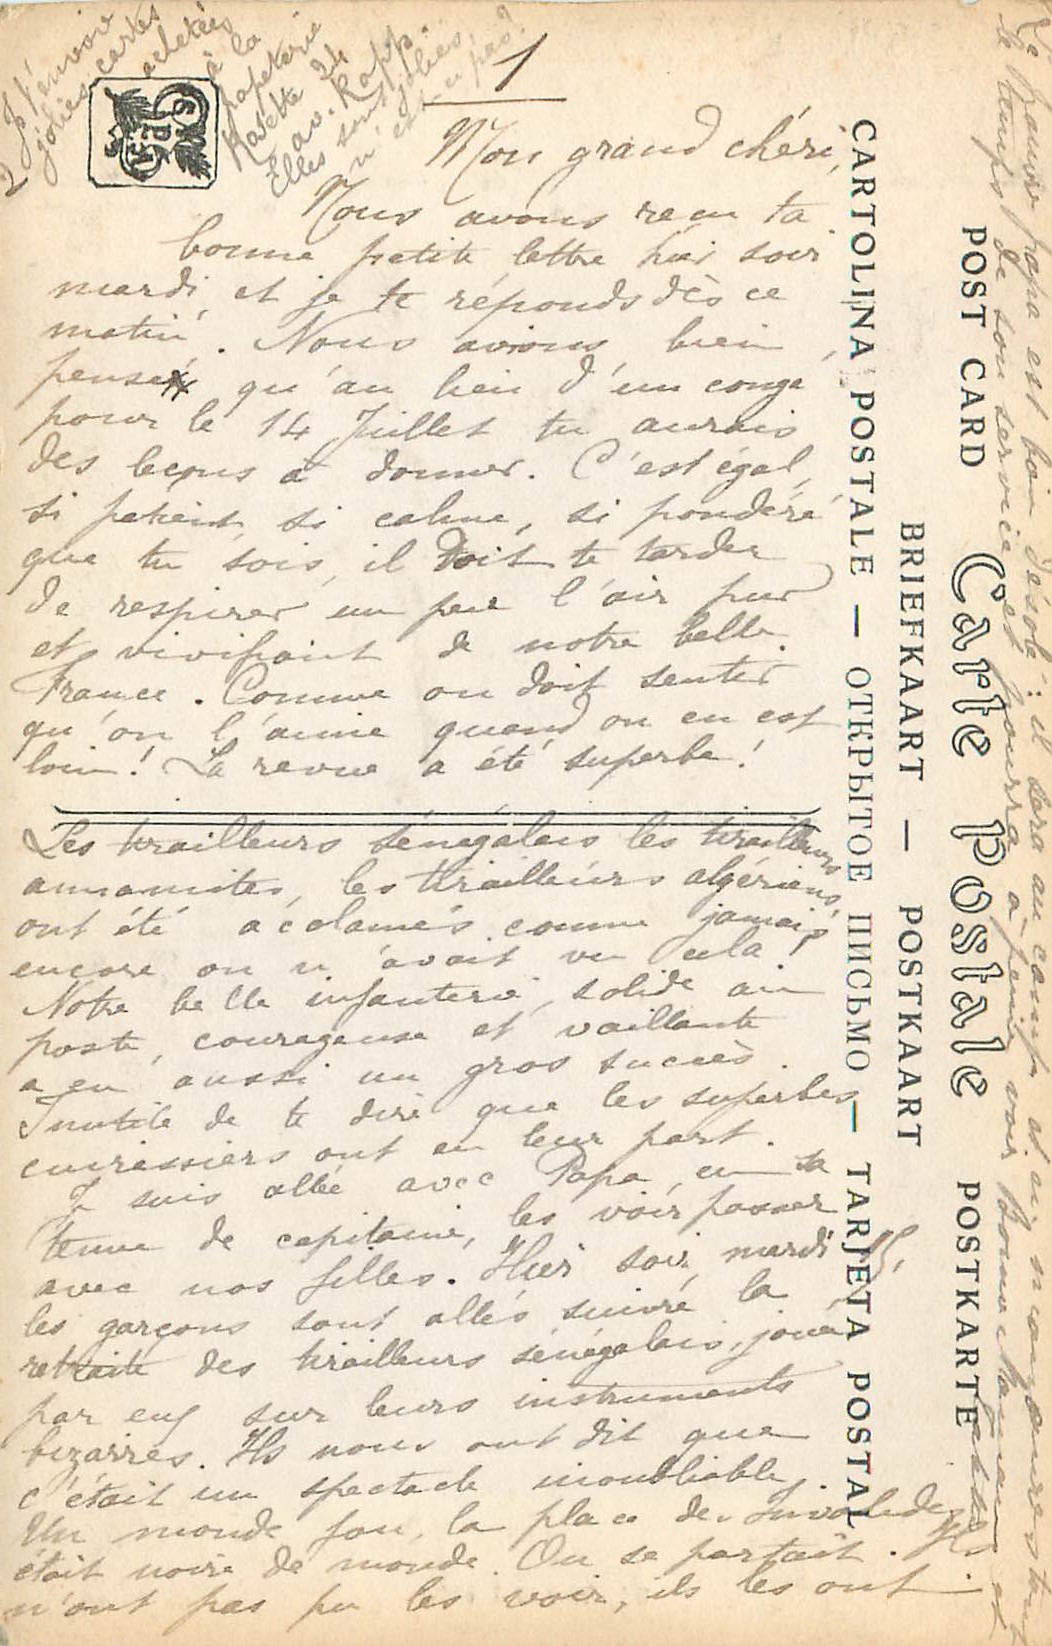 1
2 Je t'envoie
jolies cartes
achetées
à la
papeterie
24
av. Rapp.
Elles sont jolies
n'est-ce pas?
Mon grand chéri,
Nous avons reçu ta
bonne petite lettre hier soir
mardi, et je te réponds dès ce
matin. Nous avions bien
pensé qu'au lieu d'un congé
pour le 14 Juillet tu aurais
des leçons à donner. C'est égal,
si patient, si calme, si pondéré
que tu sois, il doit te tarder
de respirer un peu l'air pur
et vivifiant de notre belle
France. Comme on doit sentir
qu'on l'aime quand on en est
loin! La revue a été superbe!
Les tirailleurs sénégalais les tirailleurs
annamites, les tirailleurs algériens,
ont été acclamés comme jamais
encore on n'avait vu cela!
Notre belle infanterie, solide au
poste, courageuse et vaillante
a eu aussi un gros succès.
Inutile de te dire que les superbes
cuirassiers ont eu leur part.
Je suis allée avec Papa, en sa
tenue de capitaine, les voir passer
avec nos filles. Hier soir, mardi 15,
les garçons sont allés suivre la
retraite des tirailleurs sénégalais, jouée
par eux sur leurs instruments
bizarres. Ils nous ont dit que
c'était un spectacle inoubliable.
Un monde fou, la place des Invalides
était noire de monde. On se portait. Ils
n'ont pas pu les voir, ils les ont
CARTOLINA POSTALE — ОТКРЫТОЕ ПИСЬМО — TARJETA POSTAL
BRIEFKAART — POSTKAART
POST CARD Carte Postale POSTKARTE
Le pauvre papa est bien désolé: il sera au camp et en manœuvres tout
le temps de son service et pourra à peine voir Bonne Maman et